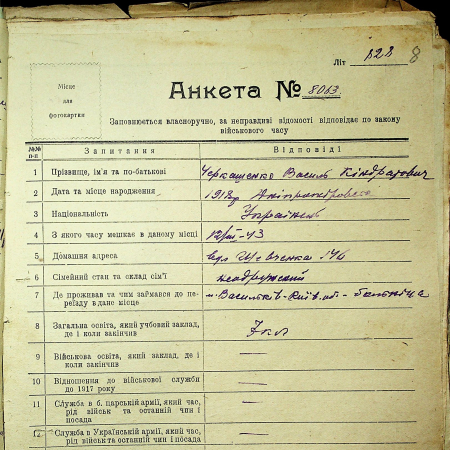 Літ 828 8
Місце
для
фотокартки
Анкета № 8013.
Заповнюється власноручно, за неправдиві відомості відповідає по закону
військового часу
№№ п-п Запитання Відповіді
1 Прізвище, ім'я та по-батькові Черкащенко Василь Кіндратович
2 Дата та місце народження 1918р Дніпропетровськ
3 Національність Українець
4 З якого часу мешкає в даному місці 12/III-43
5 Домашня адреса вул Шевченка 14
6 Сімейний стан та склад сім'ї неодружений
7 Де проживав та чим займався до пе-
реїзду в дане місце м. Васильків-Київ. об.-
8 Загальна освіта, який учбовий заклад,
де і коли закінчив 7 кл
9 Військова освіта, який заклад, де і
коли закінчив —
10 Відношення до військової служби
до 1917 року —
11 Служба в б. царській армії, який час,
рід військ та останній чин і
посада —
12 Служба в Українській армії, який час,
рід військ та останній чин і посада —